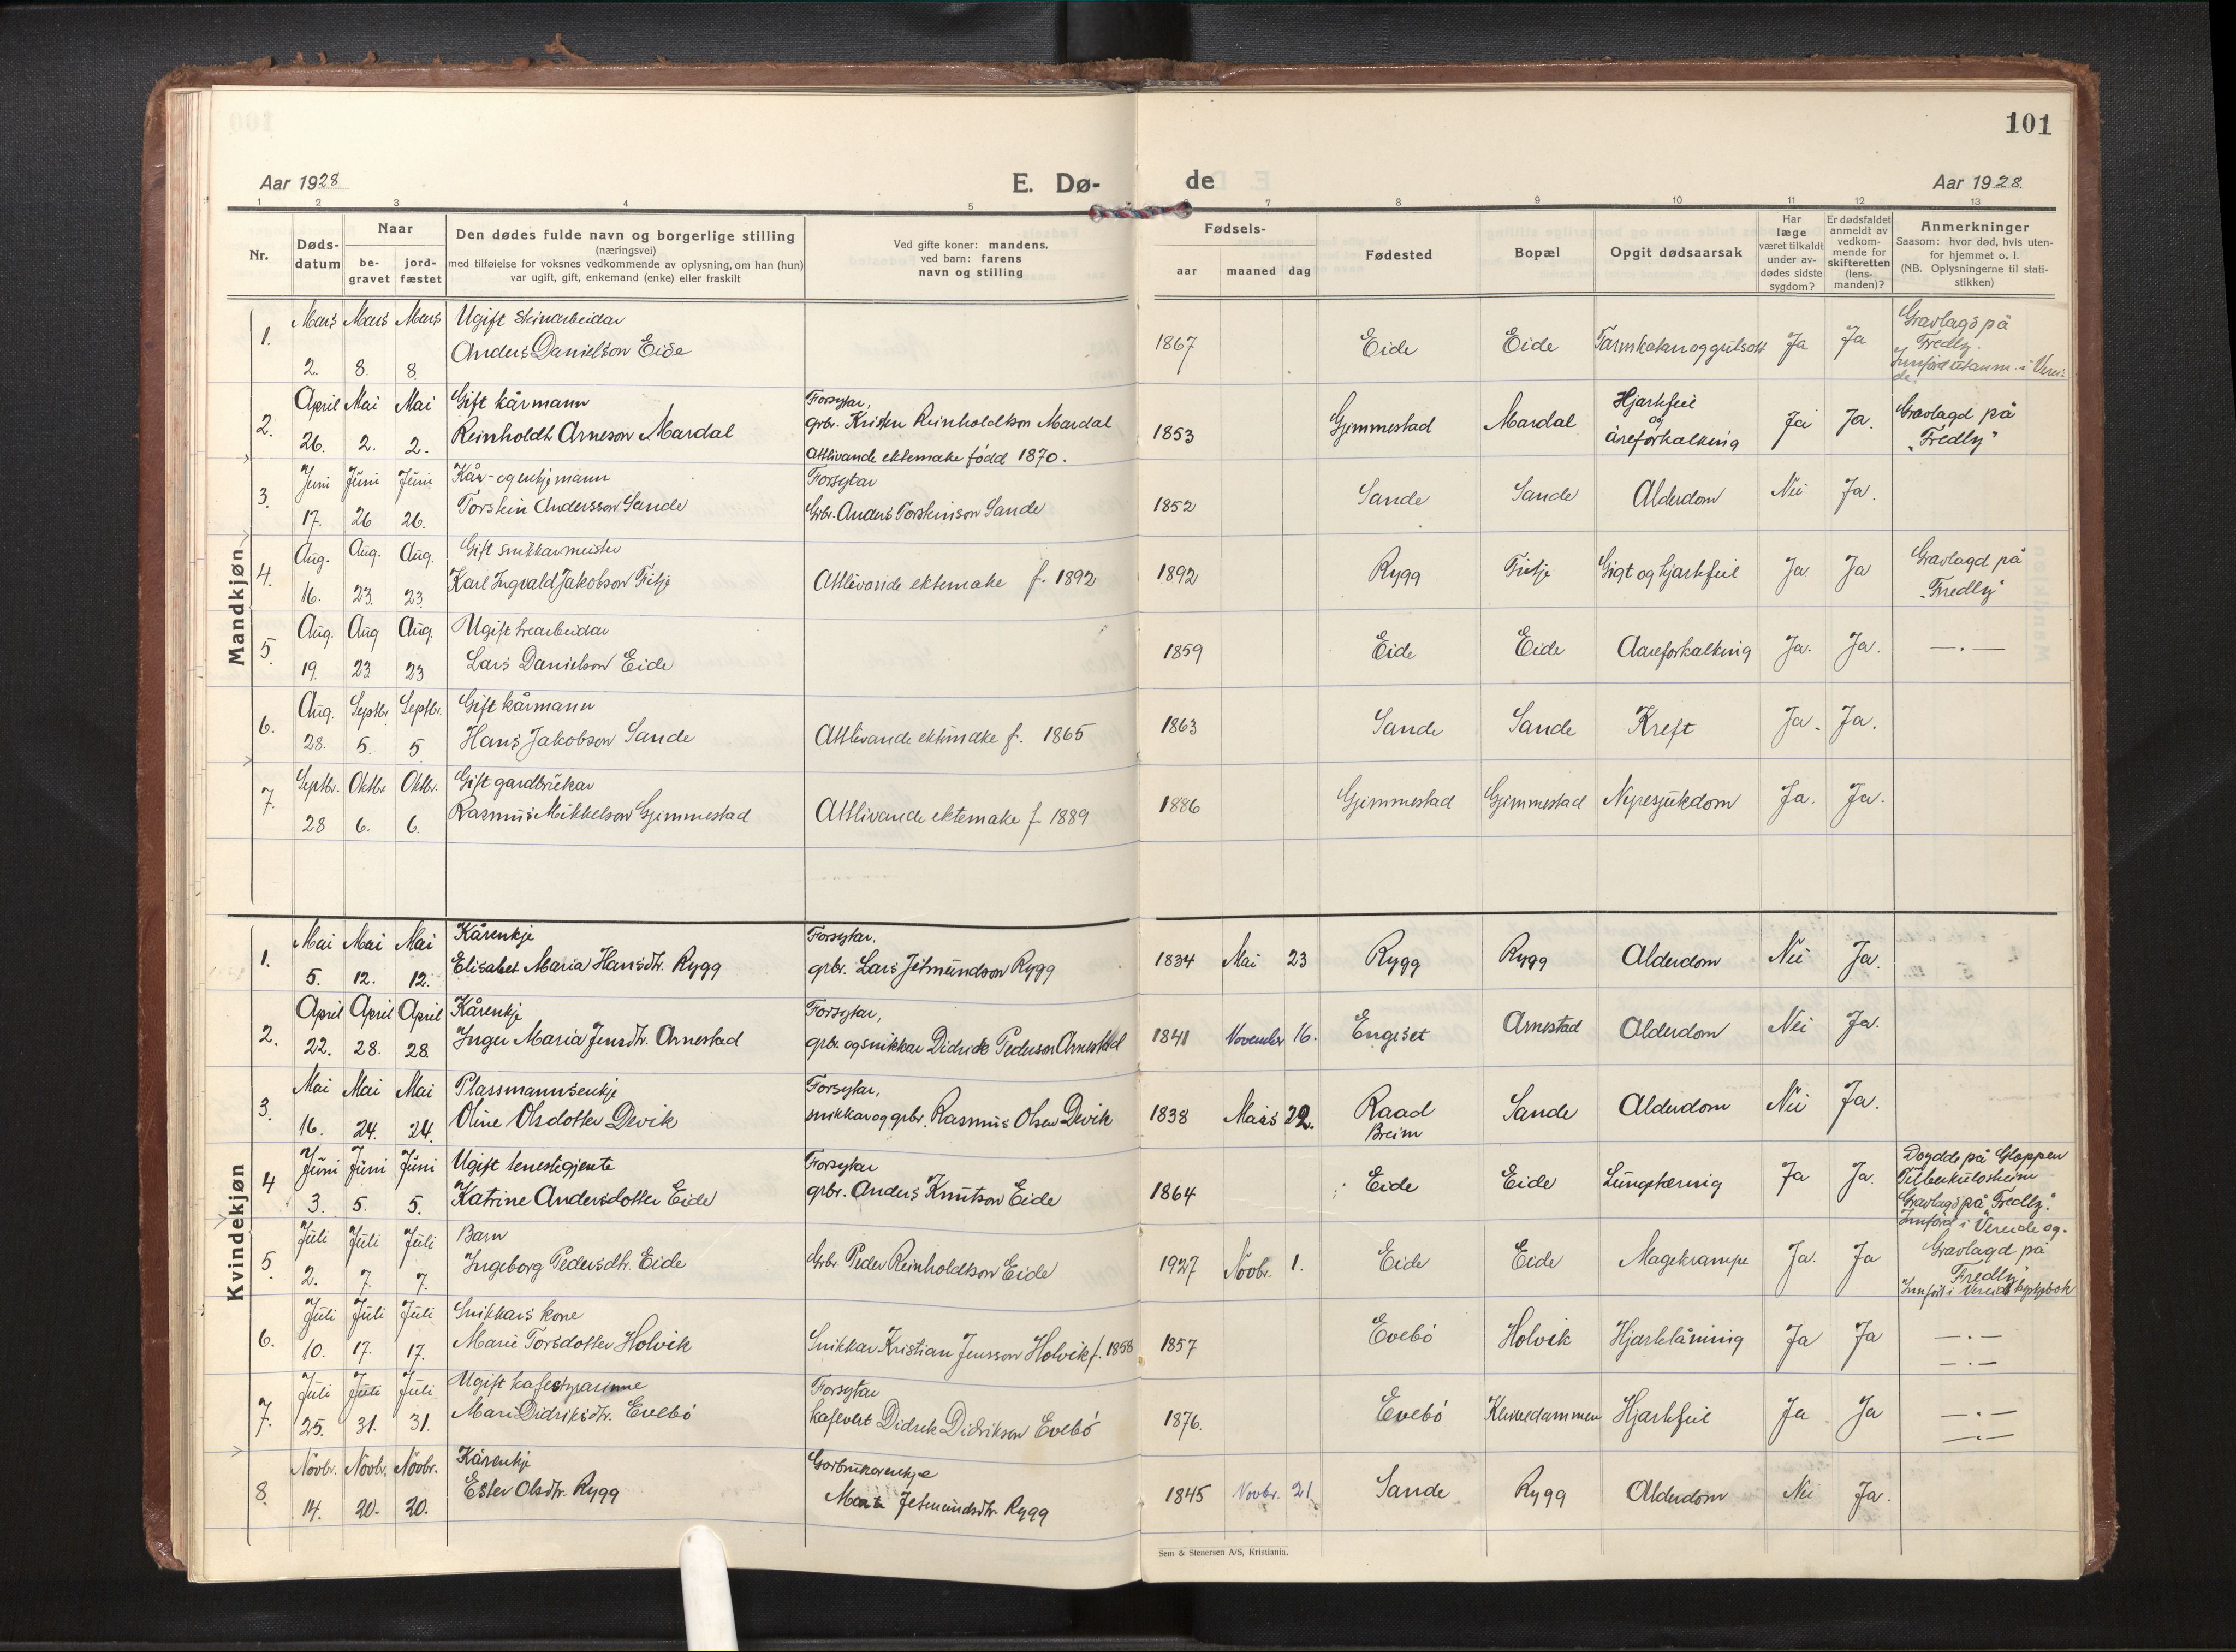 101
Aar 1928
E. Dø-
de
Aar 1928.
1 2 3 4 5 7 8 9 10 11 12 13
Nr.
Døds-
datum
Naar
be-
gravet
jord-
fæstet
Den dødes fulde navn og borgerlige stilling
(næringsvei)
med tilføielse for voksnes vedkommende av oplysning, om han (hun)
var ugift, gift, enkemand (enke) eller fraskilt
Ved gifte koner: mandens,
ved barn: farens
navn og stilling
Fødsels-
aar maaned dag
Fødested
Bopæl
Opgit dødsaarsak
Har
læge
været tilkaldt
under av-
dødes sidste
sygdom?
Er dødsfaldet
anmeldt av
vedkom-
mende for
skifteretten
(lens-
manden)?
Anmerkninger
Saasom: hvor død, hvis uten-
for hjemmet o. l.
(NB. Oplysningerne til stati-
stikken)
Mandkjøn
1.
Mars Mars Mars
2. 8. 8.
Ugift skinarbeidar
Anders Danielson Eide
1867 Eide Eide Tarmkatarr og gulsott Ja Ja
Gravlagd på
Fredly.
Innførd utanum i Verei-
de.
2.
April Mai Mai
26. 2. 2.
Gift kårmann
Reinholdt Arneson Mardal
Forsytar,
grbr. Kristen Reinholdtson Mardal
Attlivande ektemake fødd 1870.
1853 Gjimmestad Mardal
Hjartefeil
og
åreforkalking
Ja Ja.
Gravlagd på
"Fredly"
3.
Juni Juni Juni
17. 26 26.
Kår- og enkjemann
Torstein Andersson Sande
Forsytar
Grbr. Anders Torsteinson Sande
1852 Sande Sande Alderdom Nei Ja.
4.
Aug. Aug. Aug.
16. 23. 23
Gift snikkarmeister
Karl Ingvald Jakobson Fitje
Attlivande ektemake f. 1892
1892 Rygg Fitje Gigt og hjartefeil Ja Ja
Gravlagd på
"Fredly"
5.
Aug. Aug Aug.
19. 23 23
Ugift trearbeidar
Lars Danielson Eide
1859 Eide Eide Aareforkalking Ja. Ja. — . —
6.
Aug. Septbr. Septbr.
28. 5. 5
Gift kårmann
Hans Jakobson Sande
Attlivande ektemake f. 1865
1863 Sande Sande Kreft Ja. Ja.
7.
Septbr. Oktbr. Oktbr.
28 6. 6.
Gift gardbrukar
Rasmus Mikkelson Gjimmestad
Attlivande ektemake f. 1889
1886 Gjimmestad Gjimmestad Nyresjukdom Ja. Ja.
Kvindekjøn
1.
Mai Mai Mai
5. 12. 12.
Kårenkje
Elisabet Maria Hansdtr. Rygg
Forsytar.
grbr. Lars Jetmundson Rygg
1834 Mai 23 Rygg Rygg Alderdom Nei Ja.
2.
April April April
22. 28. 28.
Kårenkje
Inger Maria Jensdtr. Arnestad
Forsytar,
grbr. og snikkar Didrick Pederson Arnestad
1841 November 16. Engeset Arnestad Alderdom Nei Ja.
3.
Mai Mai Mai
16. 24. 24.
Plassmannsenkje
Oline Olsdotter Devik
Forsytar,
snikkar og grbr. Rasmus Olsen Devik
1838 Mars 22. Raad Sande Alderdom Nei Ja.
Breim
4
Juni Juni Juni
3. 5. 5.
Ugift tenestegjente
Katrine Andersdotter Eide
Forsytar
grbr. Anders Knutson Eide
1864 Eide Eide Lungetæring Ja Ja.
Døydde på Gloppen
Tuberkulosheim
Gravlagd på "Fredly".
Innførd i Vereide og.
5
Juli Juli Juli
2. 7. 7.
Barn
Ingeborg Pedersdtr. Eide
Grbr. Peder Reinholdtson Eide
1927 Novbr. 1. Eide Eide Magekrampe Ja. Ja
Gravlagd på
Fredly"
Innført i Vereide kyrkjebok
6.
Juli Juli Juli
10. 17. 17.
Snikkars kone
Marie Torsdotter Holvik
Snikkar Kristian Jensson Holvik f. 1858
1857 Evebö Holvik Hjartelåming Ja Ja — . —
— . —
7.
Juli Juli Juli
25. 31. 31.
Ugift kafestyrarinne
Mari Didriksdtr. Evebö
Forsytar
kafevert Didrik Didrikson Evebö
1876. Evebö Hjartefeil Ja Ja — . —
— . —
8.
Novbr. Novbr. Novbr.
14. 20. 20.
Kårenkje
Ester Olsdtr. Rygg
Garbrukarenkje
Marta Jetmundsdtr. Rygg
1845 Novbr. 21 Sande Rygg Alderdom Nei Ja.
Sem & Stenersen A/S, Kristiania.